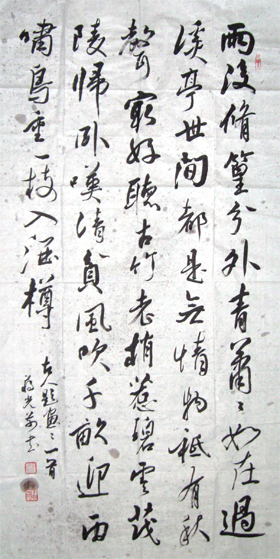 雨後脩篁分外青蕭〻如在過
溪亭世间都是无情物衹有秋
聲最好聽古竹老梢惹碧雲茂
陵歸卧嘆清貧風吹千畝迎雨
嘯鳥重一枝入酒樽
古人題畫之一首